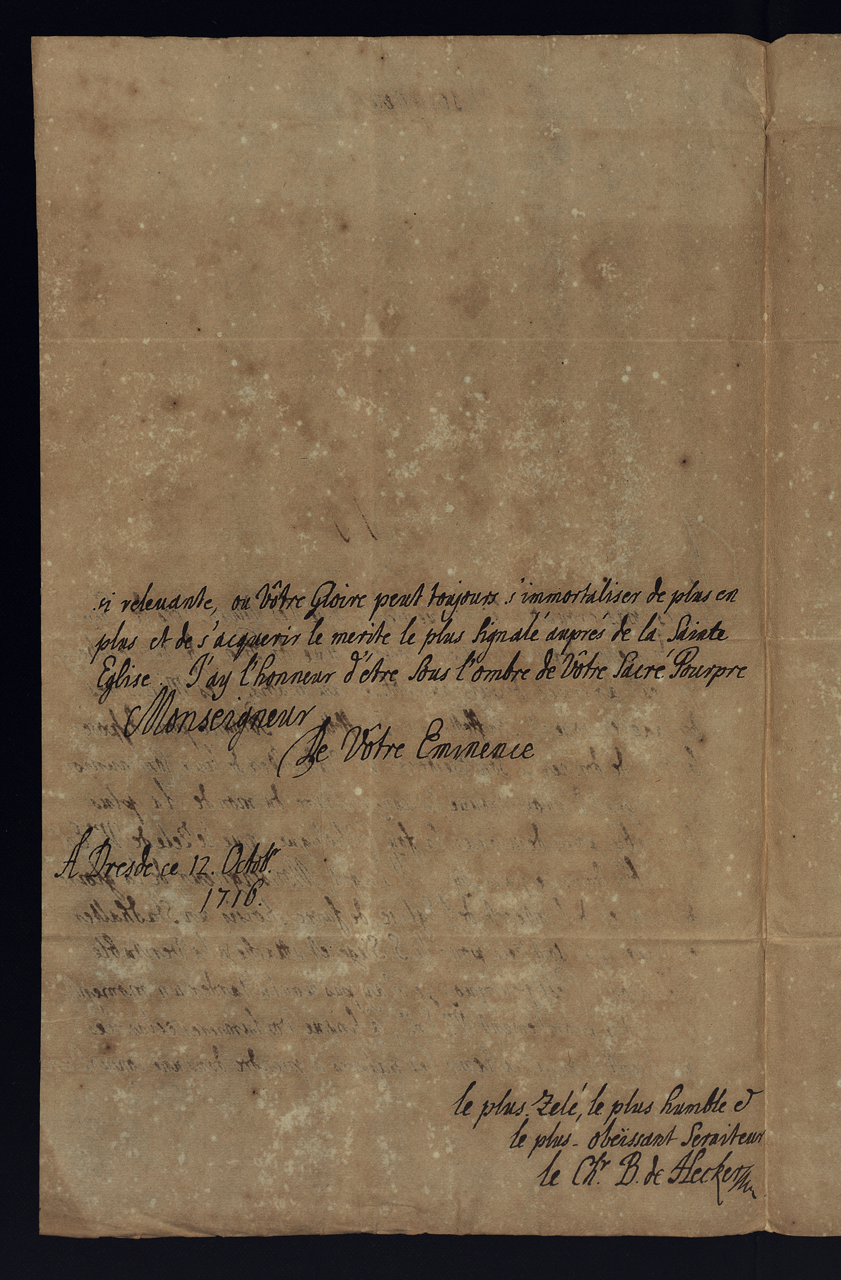 si relevante, ou Vôtre Gloire peut toujours s'immortaliser de plus en
plus et de s'acquerir le merite le plus signalé auprés de la Sainte
Eglise. J'ay l'honneur d'étre sous l'ombre de Vôtre Sacré Pourpre
Monseigneur
De Vôtre Eminence
A Dresde ce 12. Octobr.
1716.
le plus Zelé, le plus humble et
le plus obëissant Serviteur
le Chr. B. de Hecker